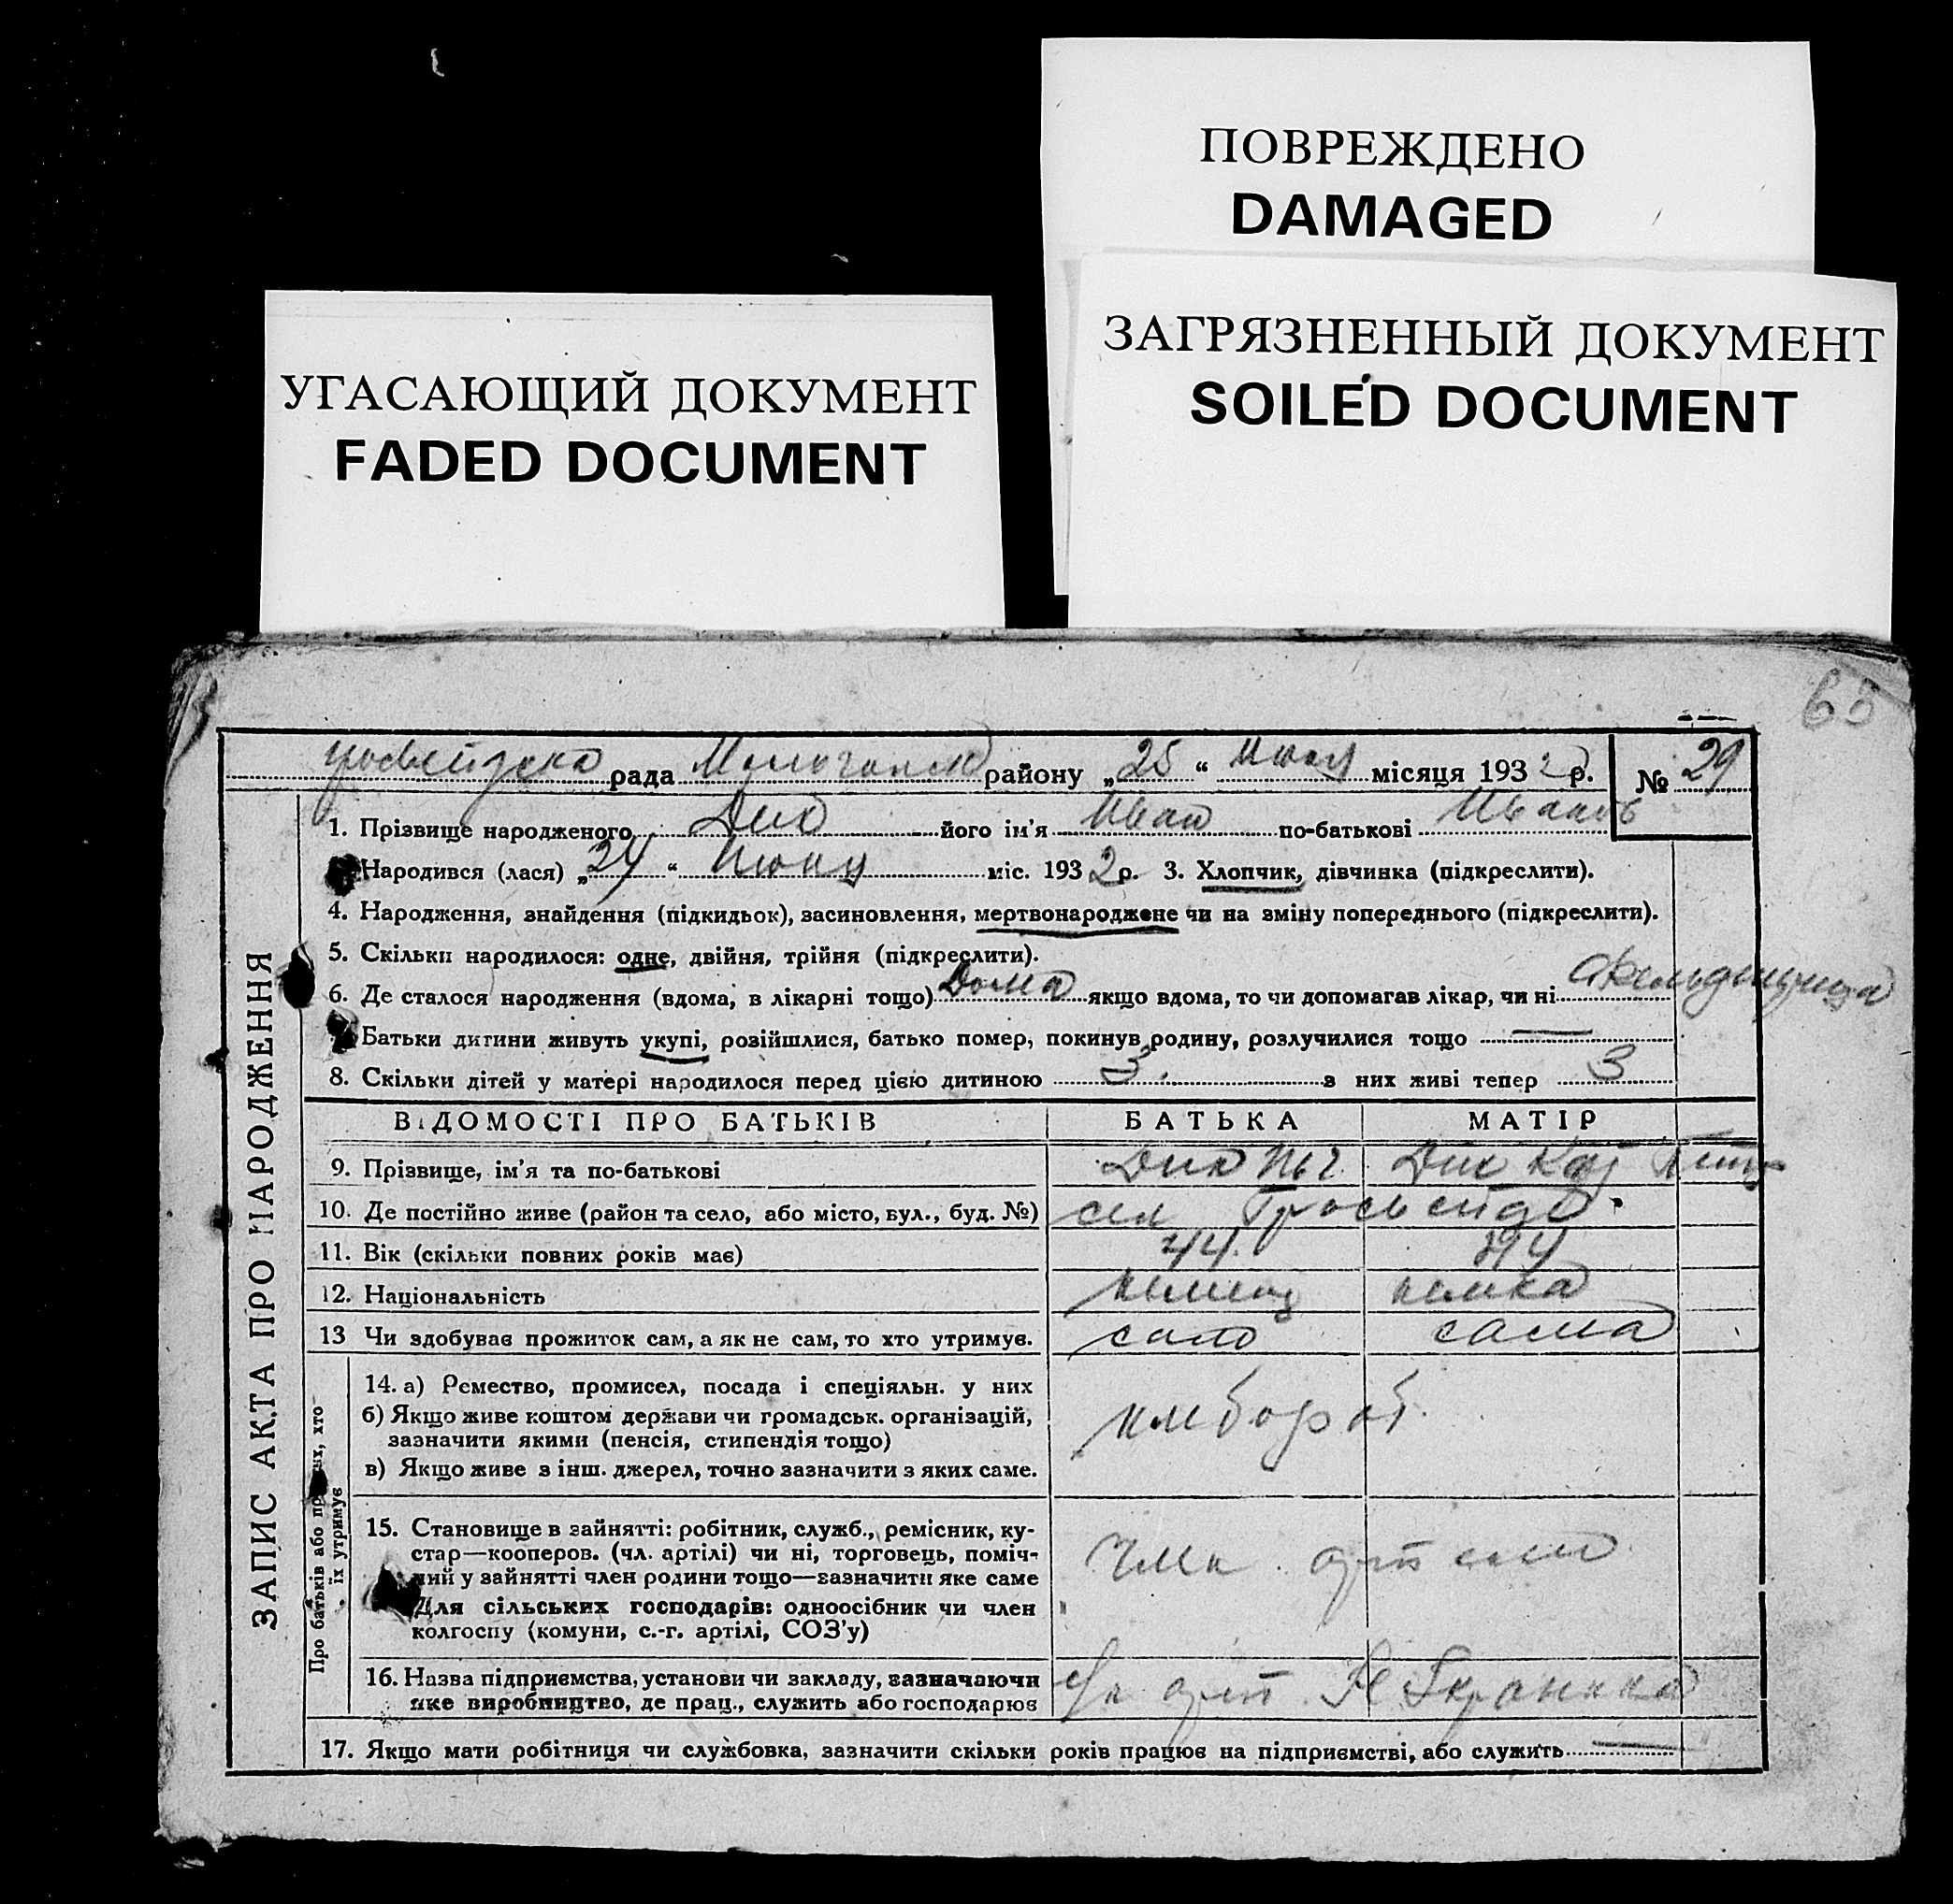 ПОВРЕЖДЕНО
DAMAGED
ЗАГРЯЗНЕННЫЙ ДОКУМЕНТ
SOILED DOCUMENT
УГАСАЮЩИЙ ДОКУМЕНТ
FADED DOCUMENT
65
рада району „25“ місяця 1932 р. № 29
1. Прізвище народженого Дик його ім'я Иван по-батькові Иванов
Народився (лася) „24“ міс. 1932 р. 3. Хлопчик, дівчинка (підкреслити).
4. Народження, знайдення (підкидьок), засиновлення, мертвонароджене чи на зміну попереднього (підкреслити).
5. Скільки народилося: одне, двійня, трійня (підкреслити).
6. Де сталося народження (вдома, в лікарні тощо) Дома якщо вдома, то чи допомагав лікар, чи ні
Батьки дитини живуть укупі, розійшлися, батько помер, покинув родину, розлучилися тощо —
8. Скільки дітей у матері народилося перед цією дитиною 3. з них живі тепер 3
ЗАПИС АКТА ПРО НАРОДЖЕННЯ
ВІДОМОСТІ ПРО БАТЬКІВ БАТЬКА МАТІР
9. Прізвище, ім'я та по-батькові Дик Дик Кат
10. Де постійно живе (район та село, або місто, вул., буд. №) сел
11. Вік (скільки повних років має) 44.
12. Національність немец немка
13 Чи здобував прожиток сам, а як не сам, то хто утримує. сам сама
Про батьків або про них, хто
їх утримує
14. а) Ремество, промисел, посада і спеціяльн. у них
б) Якщо живе коштом держави чи громадськ. організацій,
зазначити якими (пенсія, стипендія тощо)
в) Якщо живе з інш. джерел, точно зазначити з яких саме.
15. Становище в зайнятті: робітник, служб., ремісник, ку-
стар—кооперов. (чл. артілі) чи ні, торговець, поміч-
ний у зайнятті член родини тощо—зазначити яке саме
Для сільських господарів: одноосібник чи член
колгоспу (комуни, с.-г. артілі, СОЗ'у)
16. Назва підприємства, установи чи закладу, зазначаючи
яке виробництво, де прац., служить або господарює
17. Якщо мати робітниця чи службовка, зазначити скільки років працює на підприємстві, або служить —